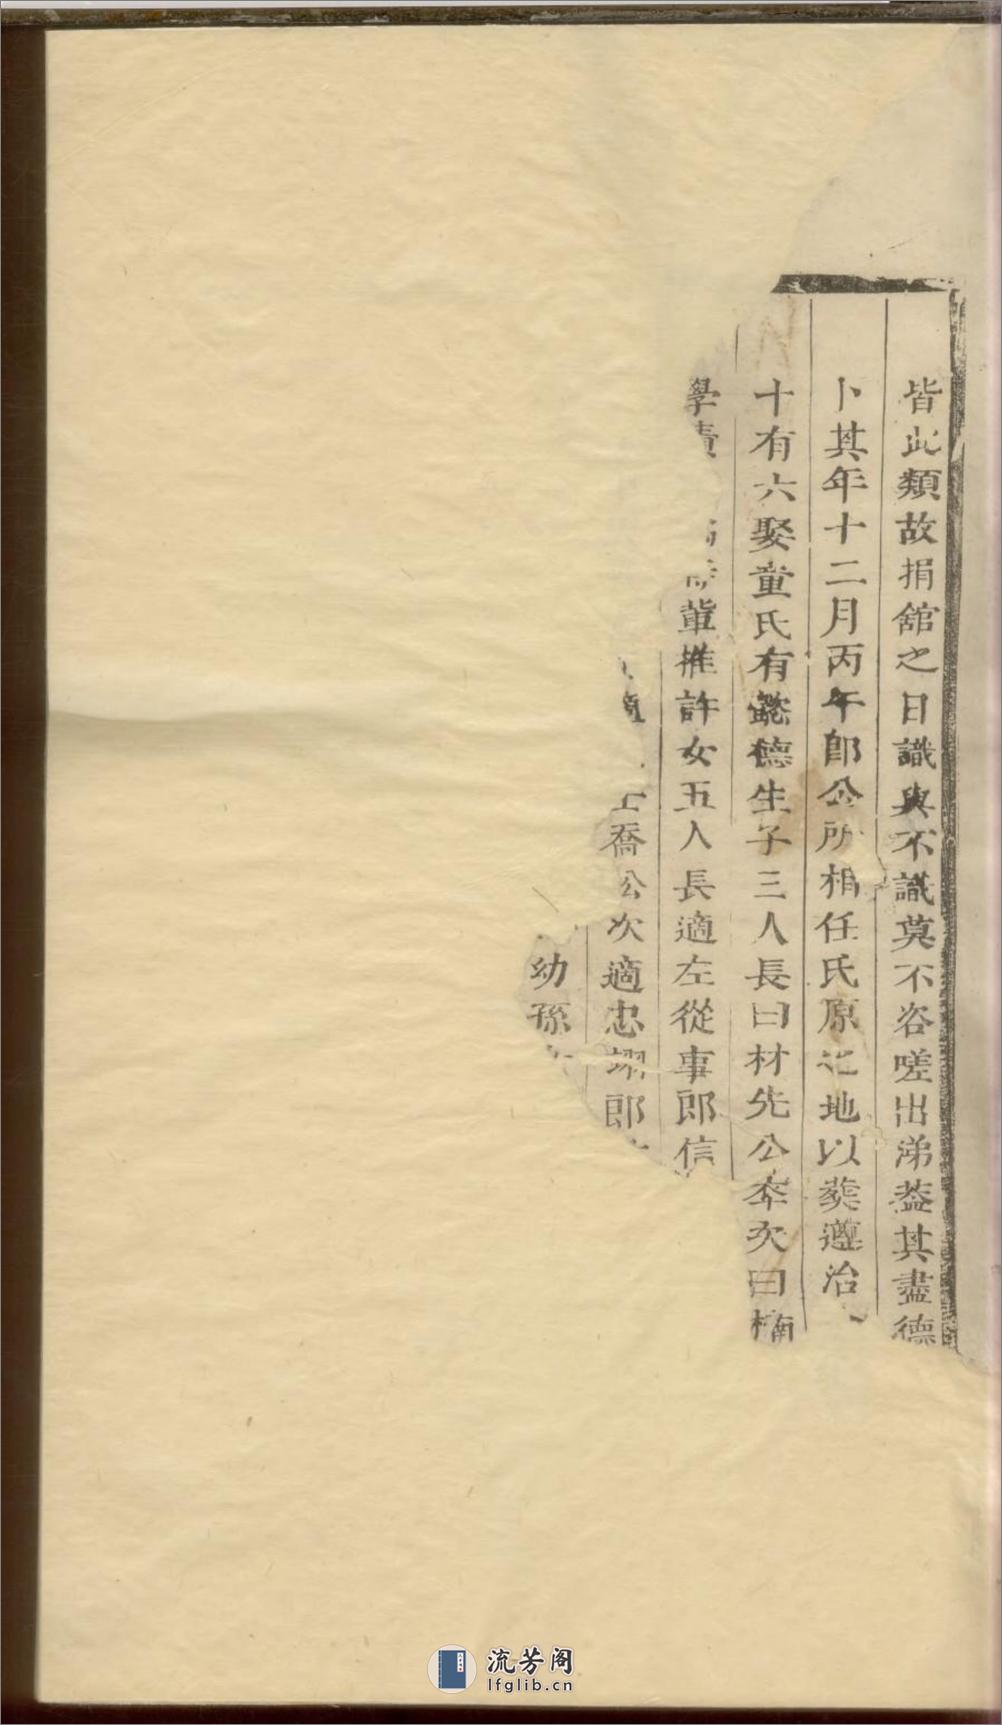 皆此類故捐舘之日識與不識莫不咨嗟出涕葢其盡德
卜其年十二月丙午即公所相任氏原之地以葬遵治
十有六娶童氏有懿德生子三人長曰材先公卒次曰楠
學責輩推許女五人長適左從事郎信
適士喬松次適忠翊郎
幼孫
流芳阁
lfglib.cn